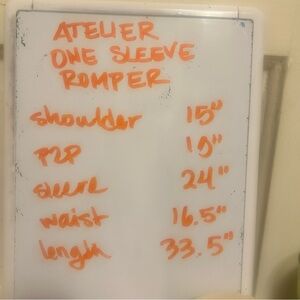 ATELIER
ONE SLEEVE
ROMPER
shoulder 15"
P2P
sleeve 24"
waist 16.5"
length 33.5"